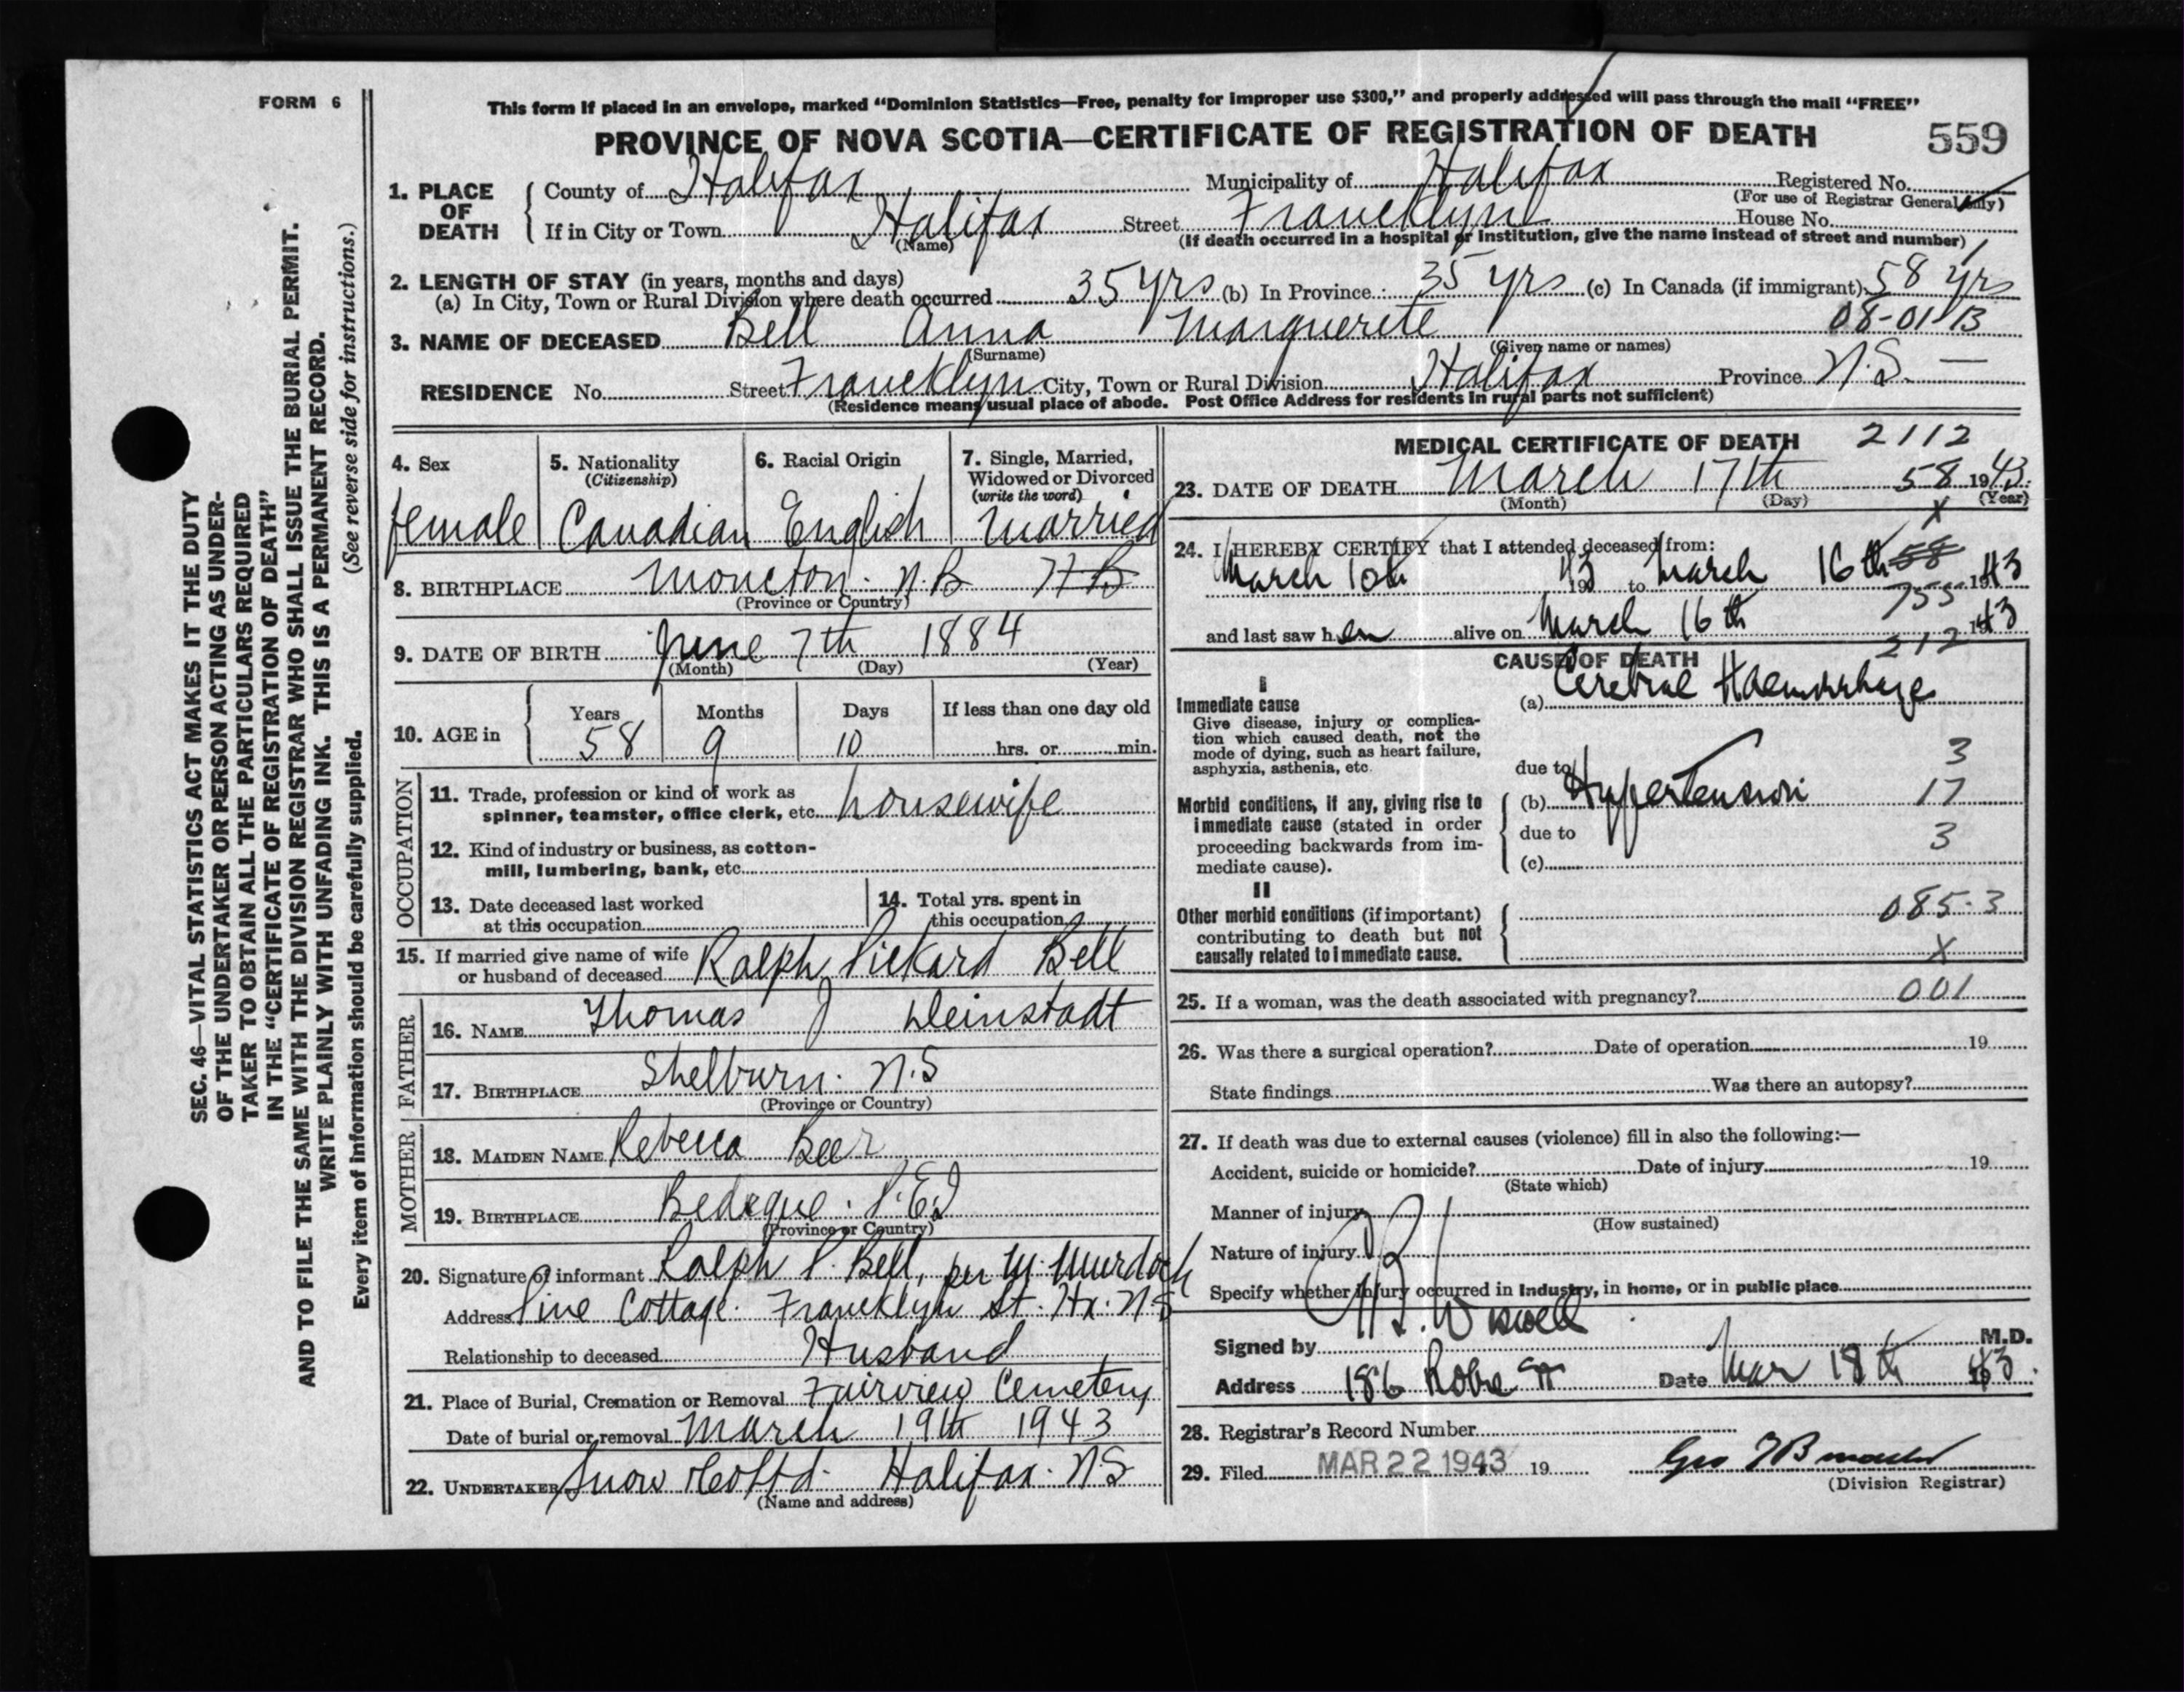 FORM 6
This form if placed in an envelope, marked “Dominion Statistics—Free, penalty for improper use $300,” and properly addressed will pass through the mail “FREE”
PROVINCE OF NOVA SCOTIA—CERTIFICATE OF REGISTRATION OF DEATH 559
SEC. 46—VITAL STATISTICS ACT MAKES IT THE DUTY
OF THE UNDERTAKER OR PERSON ACTING AS UNDER-
TAKER TO OBTAIN ALL THE PARTICULARS REQUIRED
IN THE “CERTIFICATE OF REGISTRATION OF DEATH”
AND TO FILE THE SAME WITH THE DIVISION REGISTRAR WHO SHALL ISSUE THE BURIAL PERMIT.
WRITE PLAINLY WITH UNFADING INK. THIS IS A PERMANENT RECORD.
Every item of information should be carefully supplied. (See reverse side for instructions.)
1. PLACE OF DEATH County of Halifax Municipality of Halifax Registered No.
(For use of Registrar General only)
If in City or Town Halifax Street Francklyn House No.
(Name) (If death occurred in a hospital or institution, give the name instead of street and number)
2. LENGTH OF STAY (in years, months and days)
(a) In City, Town or Rural Division where death occurred 35 yrs (b) In Province 35 yrs (c) In Canada (if immigrant) 58 yrs
08-01-13
3. NAME OF DECEASED Bell Anna Marguerete
(Surname) (Given name or names)
RESIDENCE No. Street Francklyn City, Town or Rural Division Halifax Province N.S. —
(Residence means usual place of abode. Post Office Address for residents in rural parts not sufficient)
4. Sex
female
5. Nationality
(Citizenship)
Canadian
6. Racial Origin
English
7. Single, Married,
Widowed or Divorced
(write the word)
Married
8. BIRTHPLACE Moncton. N.B
(Province or Country)
9. DATE OF BIRTH June 7th 1884
(Month) (Day) (Year)
10. AGE in Years Months Days If less than one day old
58 9 10 hrs. or min.
OCCUPATION
11. Trade, profession or kind of work as
spinner, teamster, office clerk, etc. housewife
12. Kind of industry or business, as cotton-
mill, lumbering, bank, etc.
13. Date deceased last worked
at this occupation
14. Total yrs. spent in
this occupation
15. If married give name of wife
or husband of deceased Ralph Pickard Bell
FATHER
16. NAME Thomas J Deinstadt
17. BIRTHPLACE Shelburn. N.S
(Province or Country)
MOTHER
18. MAIDEN NAME Rebecca Beer
19. BIRTHPLACE Bedeque. P.E.I
(Province or Country)
20. Signature of informant Ralph P. Bell, per M. Murdoch
Address Pine Cottage. Francklyn St. Hx. N.S
Relationship to deceased Husband
21. Place of Burial, Cremation or Removal Fairview Cemetery
Date of burial or removal March 19th 1943
22. UNDERTAKER Snow & Co Ltd. Halifax. N.S
(Name and address)
MEDICAL CERTIFICATE OF DEATH 2112
23. DATE OF DEATH March 17th 58 1943.
(Month) (Day) (Year)
X
24. I HEREBY CERTIFY that I attended deceased from:
March 10th 1943 to March 16th 58 1943
755
and last saw her alive on March 16th 1943
212
CAUSE OF DEATH
I
Immediate cause
Give disease, injury or complica-
tion which caused death, not the
mode of dying, such as heart failure,
asphyxia, asthenia, etc.
(a) Cerebral Haemorrhage
due to 3
Morbid conditions, if any, giving rise to
immediate cause (stated in order
proceeding backwards from im-
mediate cause).
(b) Hypertension 17
due to 3
(c)
II
Other morbid conditions (if important)
contributing to death but not
causally related to immediate cause.
085.3
X
25. If a woman, was the death associated with pregnancy? 001
26. Was there a surgical operation? Date of operation 19
State findings Was there an autopsy?
27. If death was due to external causes (violence) fill in also the following:—
Accident, suicide or homicide? Date of injury 19
(State which)
Manner of injury
(How sustained)
Nature of injury
Specify whether injury occurred in industry, in home, or in public place
Signed by Wiswell M.D.
Address 186 Robie St Date Mar 18th 1943.
28. Registrar's Record Number
29. Filed MAR 22 1943 19
(Division Registrar)